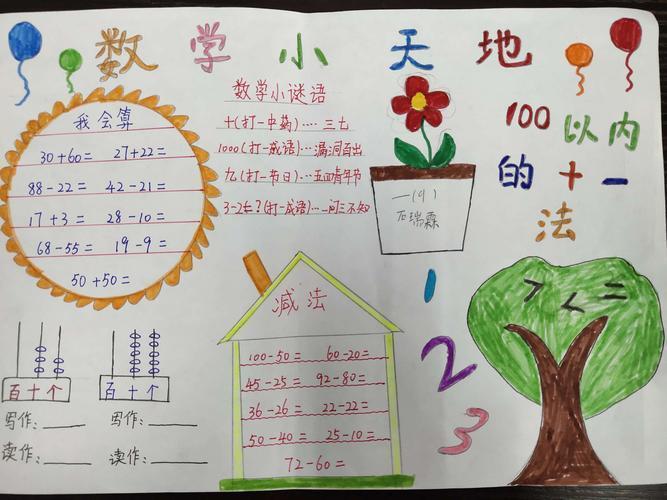 数学小天地
100以内
的+-
法
我会算
30+60= 27+22=
88-22= 42-21=
17+3= 28-10=
68-55= 19-9=
50+50=
数学小谜语
十(打一中药)....三七
1000(打一成语)...漏洞百出
九(打一节日)...五四青年节
3-2=?(打一成语)...一问三不知
一(9)
石瑞霖
减法
100-50= 60-20=
45-25= 92-80=
36-26= 22-22=
50-40= 25-10=
72-60=
1
2
3
> < =
百十个 百十个
写作: 写作:
读作: 读作: